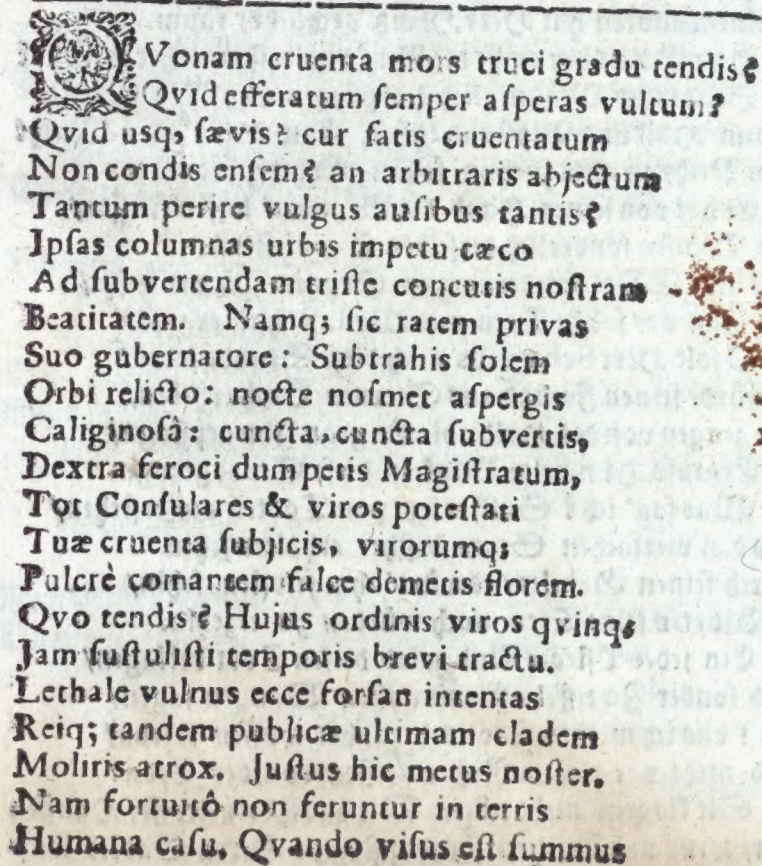 QVonam cruenta mors truci gradu tendis?
Qvid efferatum ſemper aſperas vultum?
Qvid usq; ſævis? cur fatis cruentatum
Non condis enſem? an arbitraris abjectum
Tantum perire vulgus auſibus tantis?
Jpſas columnas urbis impetu cæco
Ad ſubvertendam triſte concutis noſtram
Beatitatem. Namq; ſic ratem privas
Suo gubernatore: Subtrahis ſolem
Orbi relicto: nocte noſmet aſpergis
Caliginoſâ: cuncta cuncta ſubvertis,
Dextra feroci dum petis Magiſtratum,
Tot Conſulares & viros poteſtati
Tuæ cruenta ſubjicis, virorumq;
Pulcrè comantem falce demetis florem.
Qvo tendis? Hujus ordinis viros qvinq;
Jam ſuſtuliſti temporis brevi tractu.
Lethale vulnus ecce forſan intentas
Reiq; tandem publicæ ultimam cladem
Moliris atrox. Juſtus hic metus noſter.
Nam fortuitô non feruntur in terris
Humana caſu. Qvando viſus eſt ſummus